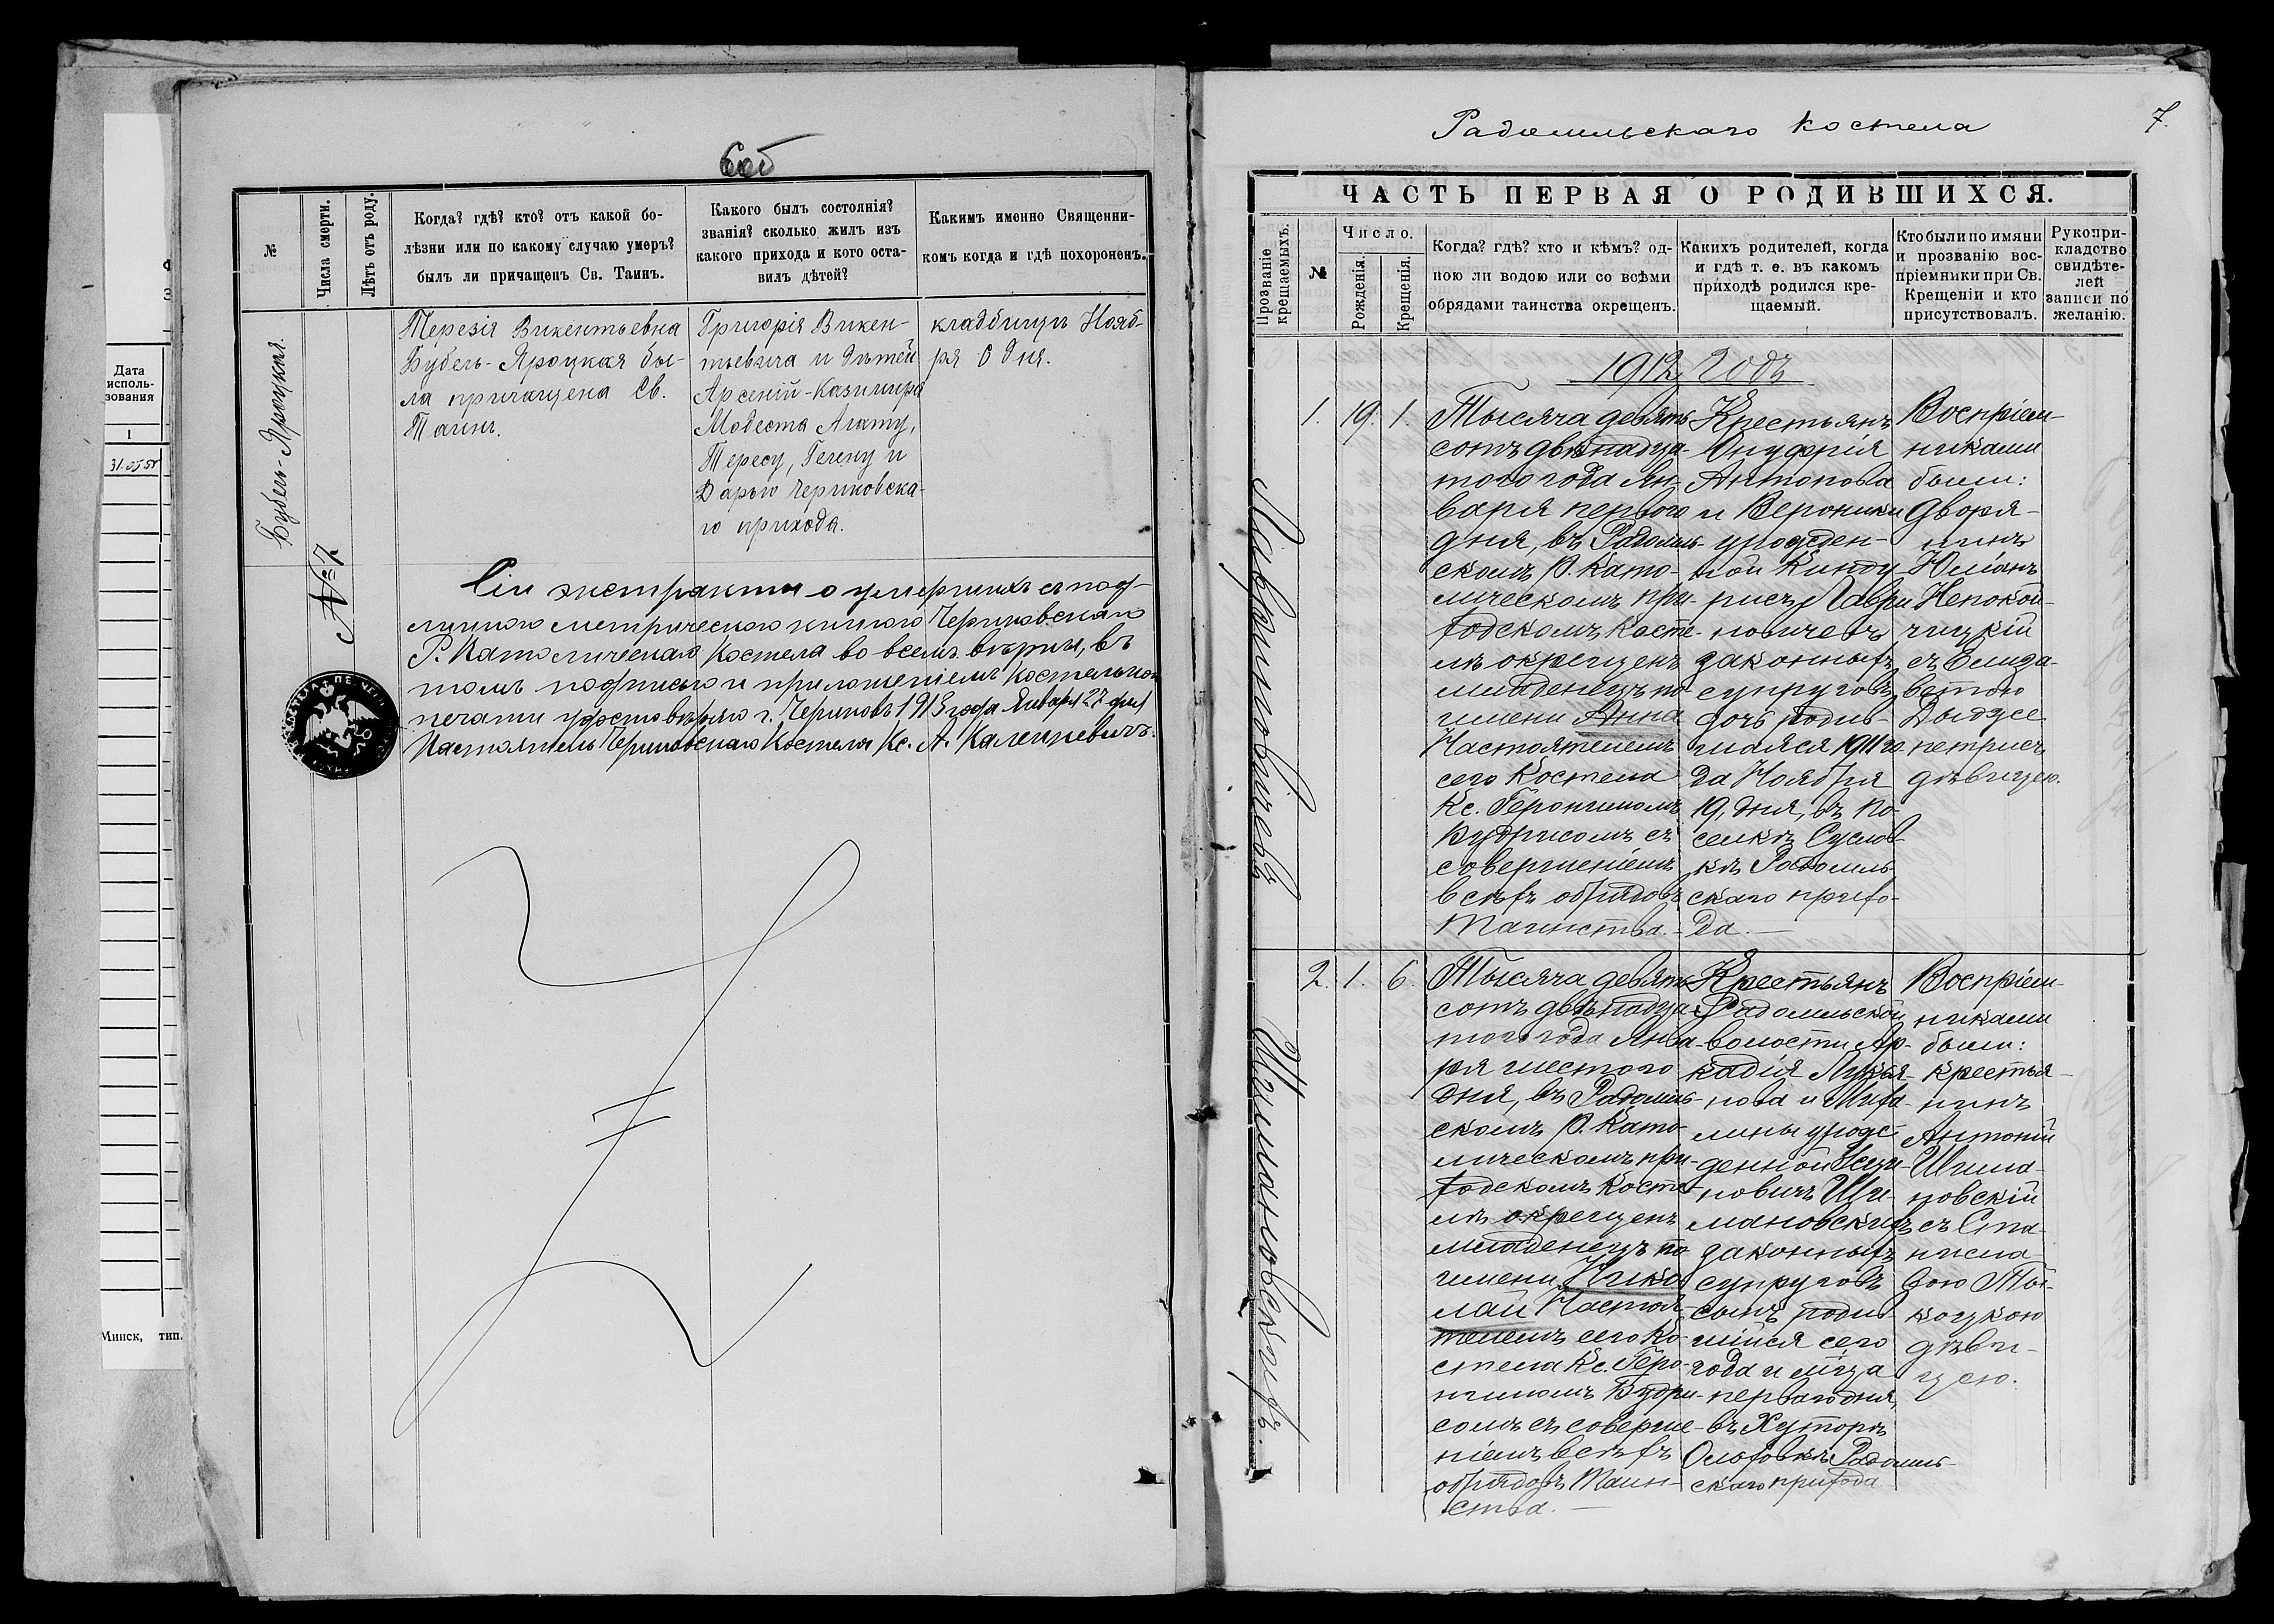 Дата
исполь-
зования
1
31.05.51
Минск, тип.
6об
№
Числа смерти.
Лѣтъ отъ роду.
Когда? гдѣ? кто? отъ какой бо-
лѣзни или по какому случаю умеръ?
былъ ли причащенъ Св. Таинъ.
Какого былъ состоянія?
званія? сколько жилъ изъ
какого прихода и кого оста-
вилъ дѣтей?
Какимъ именно Священни-
комъ когда и гдѣ похороненъ.
Бубель-Яроцкая.
Терезія Викентьевна
Бубель-Яроцкая бы-
ла причащена Св.
Таинъ.
Григорія Викен-
тьевича и дѣтей
Арсеній-Казимира
Модеста Агату,
Тересу, Гелену и
Дарью Чериковска-
го прихода.
кладбищѣ Нояб-
ря 8 дня.
№ 7
Сіи экстракты о умершихъ съ под-
линною метрическою книгою Чериковскаго
Р. Католическаго Костела во всемъ вѣрны, въ
томъ подписью и приложеніемъ Костельной
печати удостовѣряю г. Чериковъ 1913 года Января 27 дня
Настоятель Чериковскаго Костела Кс. А. Каленкевичъ.
Радомильскаго костела
7.
ЧАСТЬ ПЕРВАЯ О РОДИВШИХСЯ.
Прозваніе
крещаемыхъ.
№
Число.
Рожденія.
Крещенія.
Когда? гдѣ? кто и кѣмъ? од-
ною ли водою или со всѣми
обрядами таинства окрещенъ.
Какихъ родителей, когда
и гдѣ т. е. въ какомъ
приходѣ родился кре-
щаемый.
Кто были по имяни
и прозванію вос-
пріемники при Св.
Крещеніи и кто
присутствовалъ.
Рукопри-
кладство
свидѣте-
лей
записи по
желанію.
1912 годъ
Лавриновичевъ
1. 19. 1.
Тысяча девять
сотъ двѣнадца-
того года Ян-
варя перваго
дня, въ Радомиль-
скомъ Р. Като-
лическомъ при-
ходскомъ Косте-
лѣ окрещенъ
младенецъ по
имени Анна
Настоятелемъ
сего Костела
Кс. Геронимомъ
Будрисомъ съ
совершеніемъ
всѣхъ обрядовъ
Таинства.
Крестьянъ
Онуфрія
Антонова
и Вероники
урожден-
ной Кинду
рисъ Лаври
новичевъ
законныхъ
супруговъ
дочь родив-
шаяся 1911 го
да Ноября
19, дня, въ по-
селкѣ Суслов-
кѣ Радомиль-
скаго прихо-
да.
Воспріем-
никами
были:
Дворя-
нинъ
Юліанъ
Непокой-
чицкій
съ Елиза-
ветою
Дыдзье
петрисъ
дѣвицею.
Шимановскихъ.
2. 1. 6.
Тысяча девять
сотъ двѣнадца-
того года Янва-
ря шестого
дня, въ Радомиль-
скомъ Р. Като-
лическомъ при-
ходскомъ Косте-
лѣ окрещенъ
младенецъ по
имени Нико
лай Настоя-
телемъ сего Ко-
стела Кс. Геро-
нимомъ Будри-
сомъ съ соверше-
ніемъ всѣхъ
обрядовъ Таин-
ства.
Крестьянъ
Радомильской
волости Ар-
кадія Лукья-
нова и Миха-
лины урож-
денной
новичъ Ши-
мановскихъ
законныхъ
супруговъ
сынъ родив-
шійся сего
года и м-ца
перваго дня,
въ Хуторѣ
Ольховкѣ Радомиль-
скаго прихода
Воспріем-
никами
были:
крестья-
нинъ
Антоній
Шима-
новскій
съ Ста-
нисла-
вою Ты-
коцкою
дѣви-
цею.